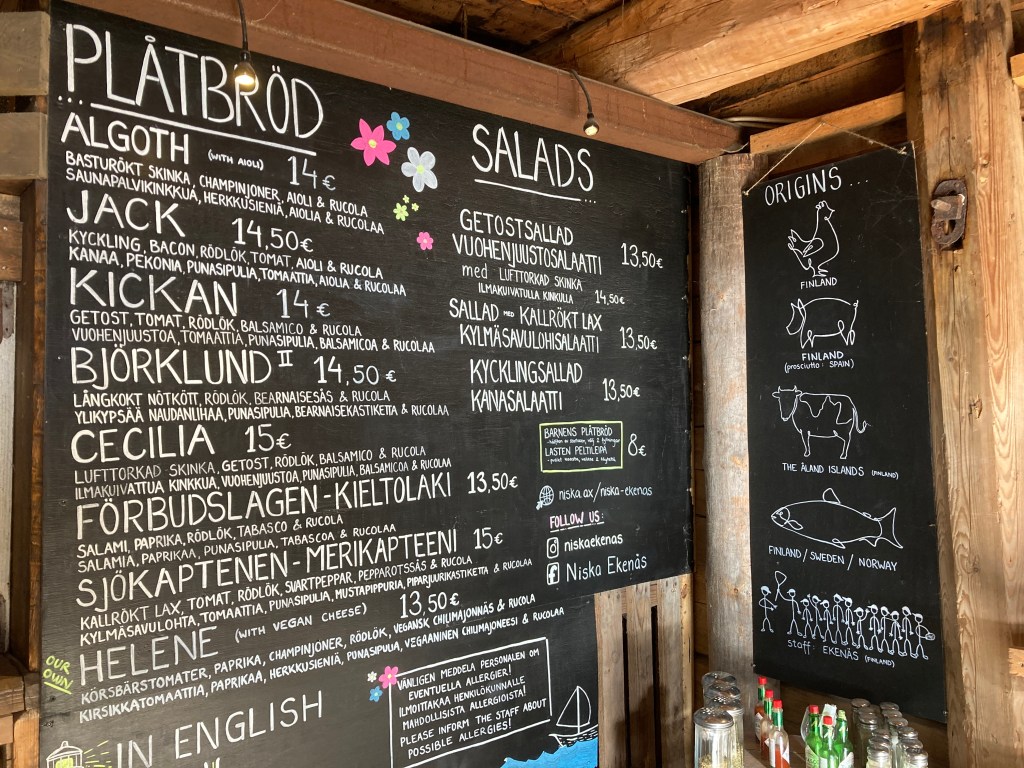 PLÅTBRÖD
ALGOTH (WITH AIOLI) 14€
BASTURÖKT SKINKA, CHAMPINJONER, AIOLI & RUCOLA
SAUNAPALVIKINKKUA, HERKKUSIENIÄ, AIOLIA & RUCOLAA
JACK 14,50€
KYCKLING, BACON, RÖDLÖK, TOMAT, AIOLI & RUCOLA
KANAA, PEKONIA, PUNASIPULIA, TOMAATTIA, AIOLIA & RUCOLAA
KICKAN 14€
GETOST, TOMAT, RÖDLÖK, BALSAMICO & RUCOLA
VUOHENJUUSTOA, TOMAATTIA, PUNASIPULIA, BALSAMICOA & RUCOLAA
BJÖRKLUND II 14,50€
LÅNGKOKT NÖTKÖTT, RÖDLÖK, BEARNAISESÅS & RUCOLA
YLIKYPSÄÄ NAUDANLIHAA, PUNASIPULIA, BEARNAISEKASTIKETTA & RUCOLAA
CECILIA 15€
LUFTTORKAD SKINKA, GETOST, RÖDLÖK, BALSAMICO & RUCOLA
ILMAKUIVATTUA KINKKUA, VUOHENJUUSTOA, PUNASIPULIA, BALSAMICOA & RUCOLAA
FÖRBUDSLAGEN - KIELTOLAKI 13,50€
SALAMI, PAPRIKA, RÖDLÖK, TABASCO & RUCOLA
SALAMIA, PAPRIKAA, PUNASIPULIA, TABASCOA & RUCOLAA
SJÖKAPTENEN - MERIKAPTEENI 15€
KALLRÖKT LAX, TOMAT, RÖDLÖK, SVARTPEPPAR, PEPPAROTSSÅS & RUCOLA
KYLMÄSAVULOHTA, TOMAATTIA, PUNASIPULIA, MUSTAPIPPURIA, PIPARJUURIKASTIKETTA & RUCOLAA
OUR OWN
HELENE (WITH VEGAN CHEESE) 13,50€
KÖRSBÄRSTOMATER, PAPRIKA, CHAMPINJONER, RÖDLÖK, VEGANSK CHILIMAJONNÄS & RUCOLA
KIRSIKKATOMAATTIA, PAPRIKAA, HERKKUSIENIÄ, PUNASIPULIA, VEGAANINEN CHILIMAJONEESI & RUCOLAA
IN ENGLISH
VÄNLIGEN MEDDELA PERSONALEN OM
EVENTUELLA ALLERGIER!
ILMOITTAKAA HENKILÖKUNNALLE
MAHDOLLISISTA ALLERGIOISTA!
PLEASE INFORM THE STAFF ABOUT
POSSIBLE ALLERGIES!
SALADS
GETOSTSALLAD
VUOHENJUUSTOSALAATTI 13,50€
med LUFTTORKAD SKINKA
ILMAKUIVATULLA KINKULLA 14,50€
SALLAD MED KALLRÖKT LAX
KYLMÄSAVULOHISALAATTI 13,50€
KYCKLINGSALLAD
KANASALAATTI 13,50€
BARNENS PLÅTBRÖD
LASTEN PELTILEIPÄ
8€
niska.ax/niska-ekenas
FOLLOW US:
niskaekenas
Niska Ekenäs
ORIGINS...
FINLAND
FINLAND
(prosciutto: SPAIN)
THE ÅLAND ISLANDS (FINLAND)
FINLAND / SWEDEN / NORWAY
staff: EKENÄS (FINLAND)